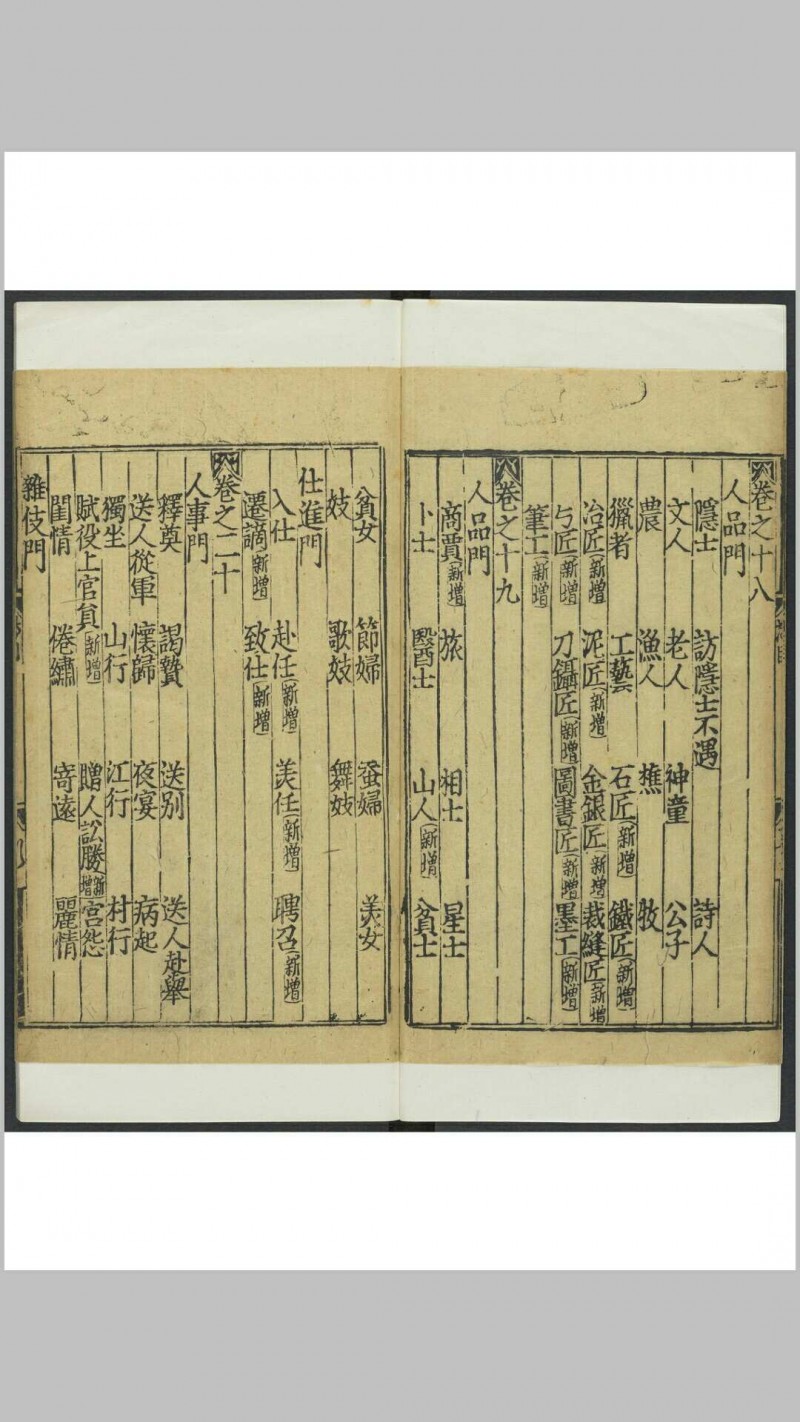 卷之十八
人品門
隱士 訪隱士不遇 詩人
文人 老人 神童 公子
農 漁人 樵 牧
獵者 工藝 石匠新增 鐵匠新增
冶匠新增 泥匠新增 金銀匠新增 裁縫匠新增
丐匠新增 刀鑷匠新增 圖書匠新增 墨工新增
筆工新增
卷之十九
人品門
商賈新增 旅 相士 星士
卜士 醫士 山人新增 貧士
貧女 節婦 蚕婦 美女
妓 歌妓 舞妓
仕進門
入仕 赴任新增 美任新增 聘召新增
遷謫新增 致仕新增
卷之二十
人事門
釋奠 謁贄 送别 送人赴舉
送人從軍 懷歸 夜宴 病起
獨坐 山行 江行 村行
賦役上官負新增 贈人訟勝新增 宮怨
閨情 倦繡 寄遠 麗情
雜伎門